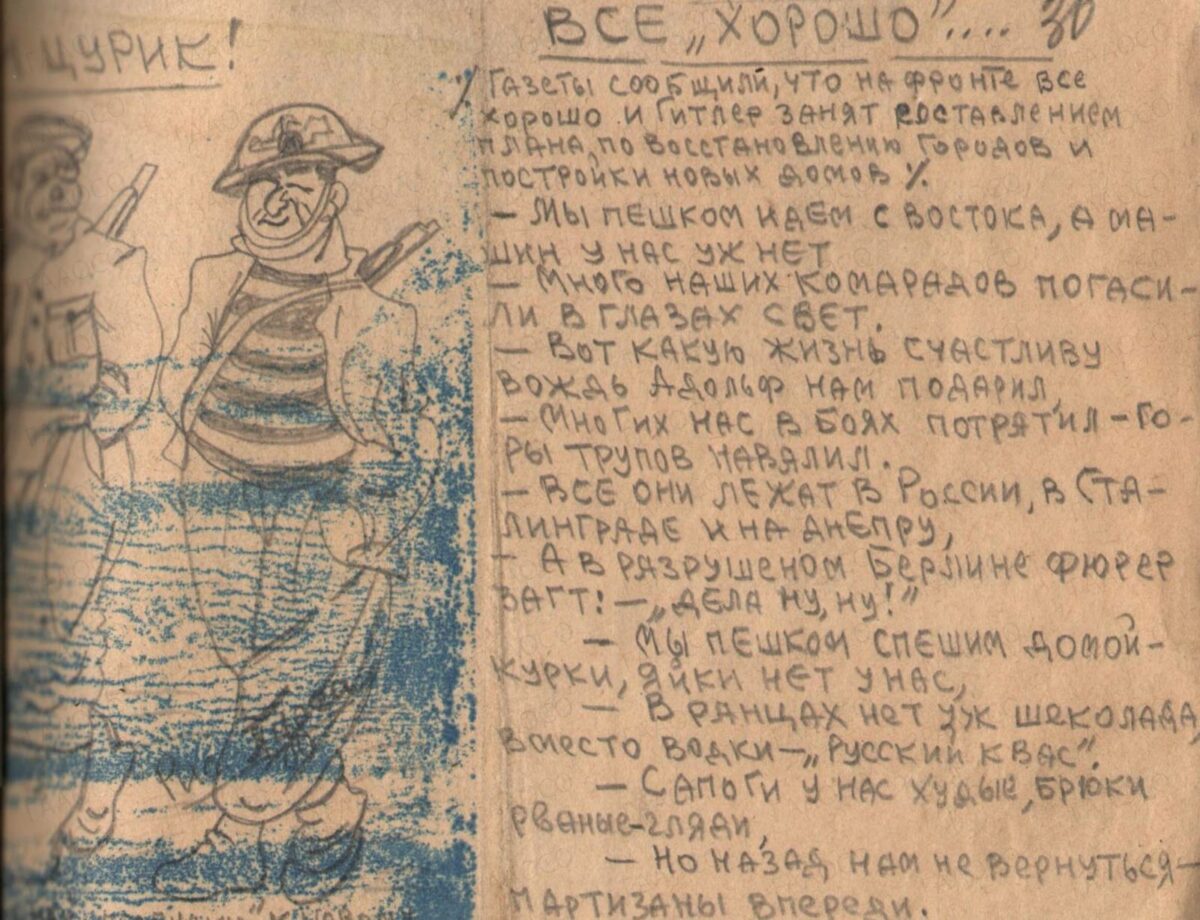 ЦУРИК!
ВСЕ „ХОРОШО”.... 30
% Газеты сообщили, что на фронте все
хорошо и Гитлер занят составлением
плана, по восстановлению городов и
постройки новых домов %.
— Мы пешком идем с востока, а ма-
шин у нас уж нет
— Много наших комарадов погаси-
ли в глазах свет.
— Вот какую жизнь счастливу
вождь Адольф нам подарил,
— Многих нас в боях потратил – го-
ры трупов навалил.
— Все они лежат в России, в Ста-
линграде и на Днепру,
— А в разрушеном Берлине фюрер
загт: — „Дела ну, ну!”
— Мы пешком спешим домой-
курки, яйки нет у нас,
— В ранцах нет уж шеколада,
вместо водки —„Русский квас”.
— Сапоги у нас худые, брюки
рваные-гляди,
— Но назад нам не вернуться-
партизаны впереди.
Рис